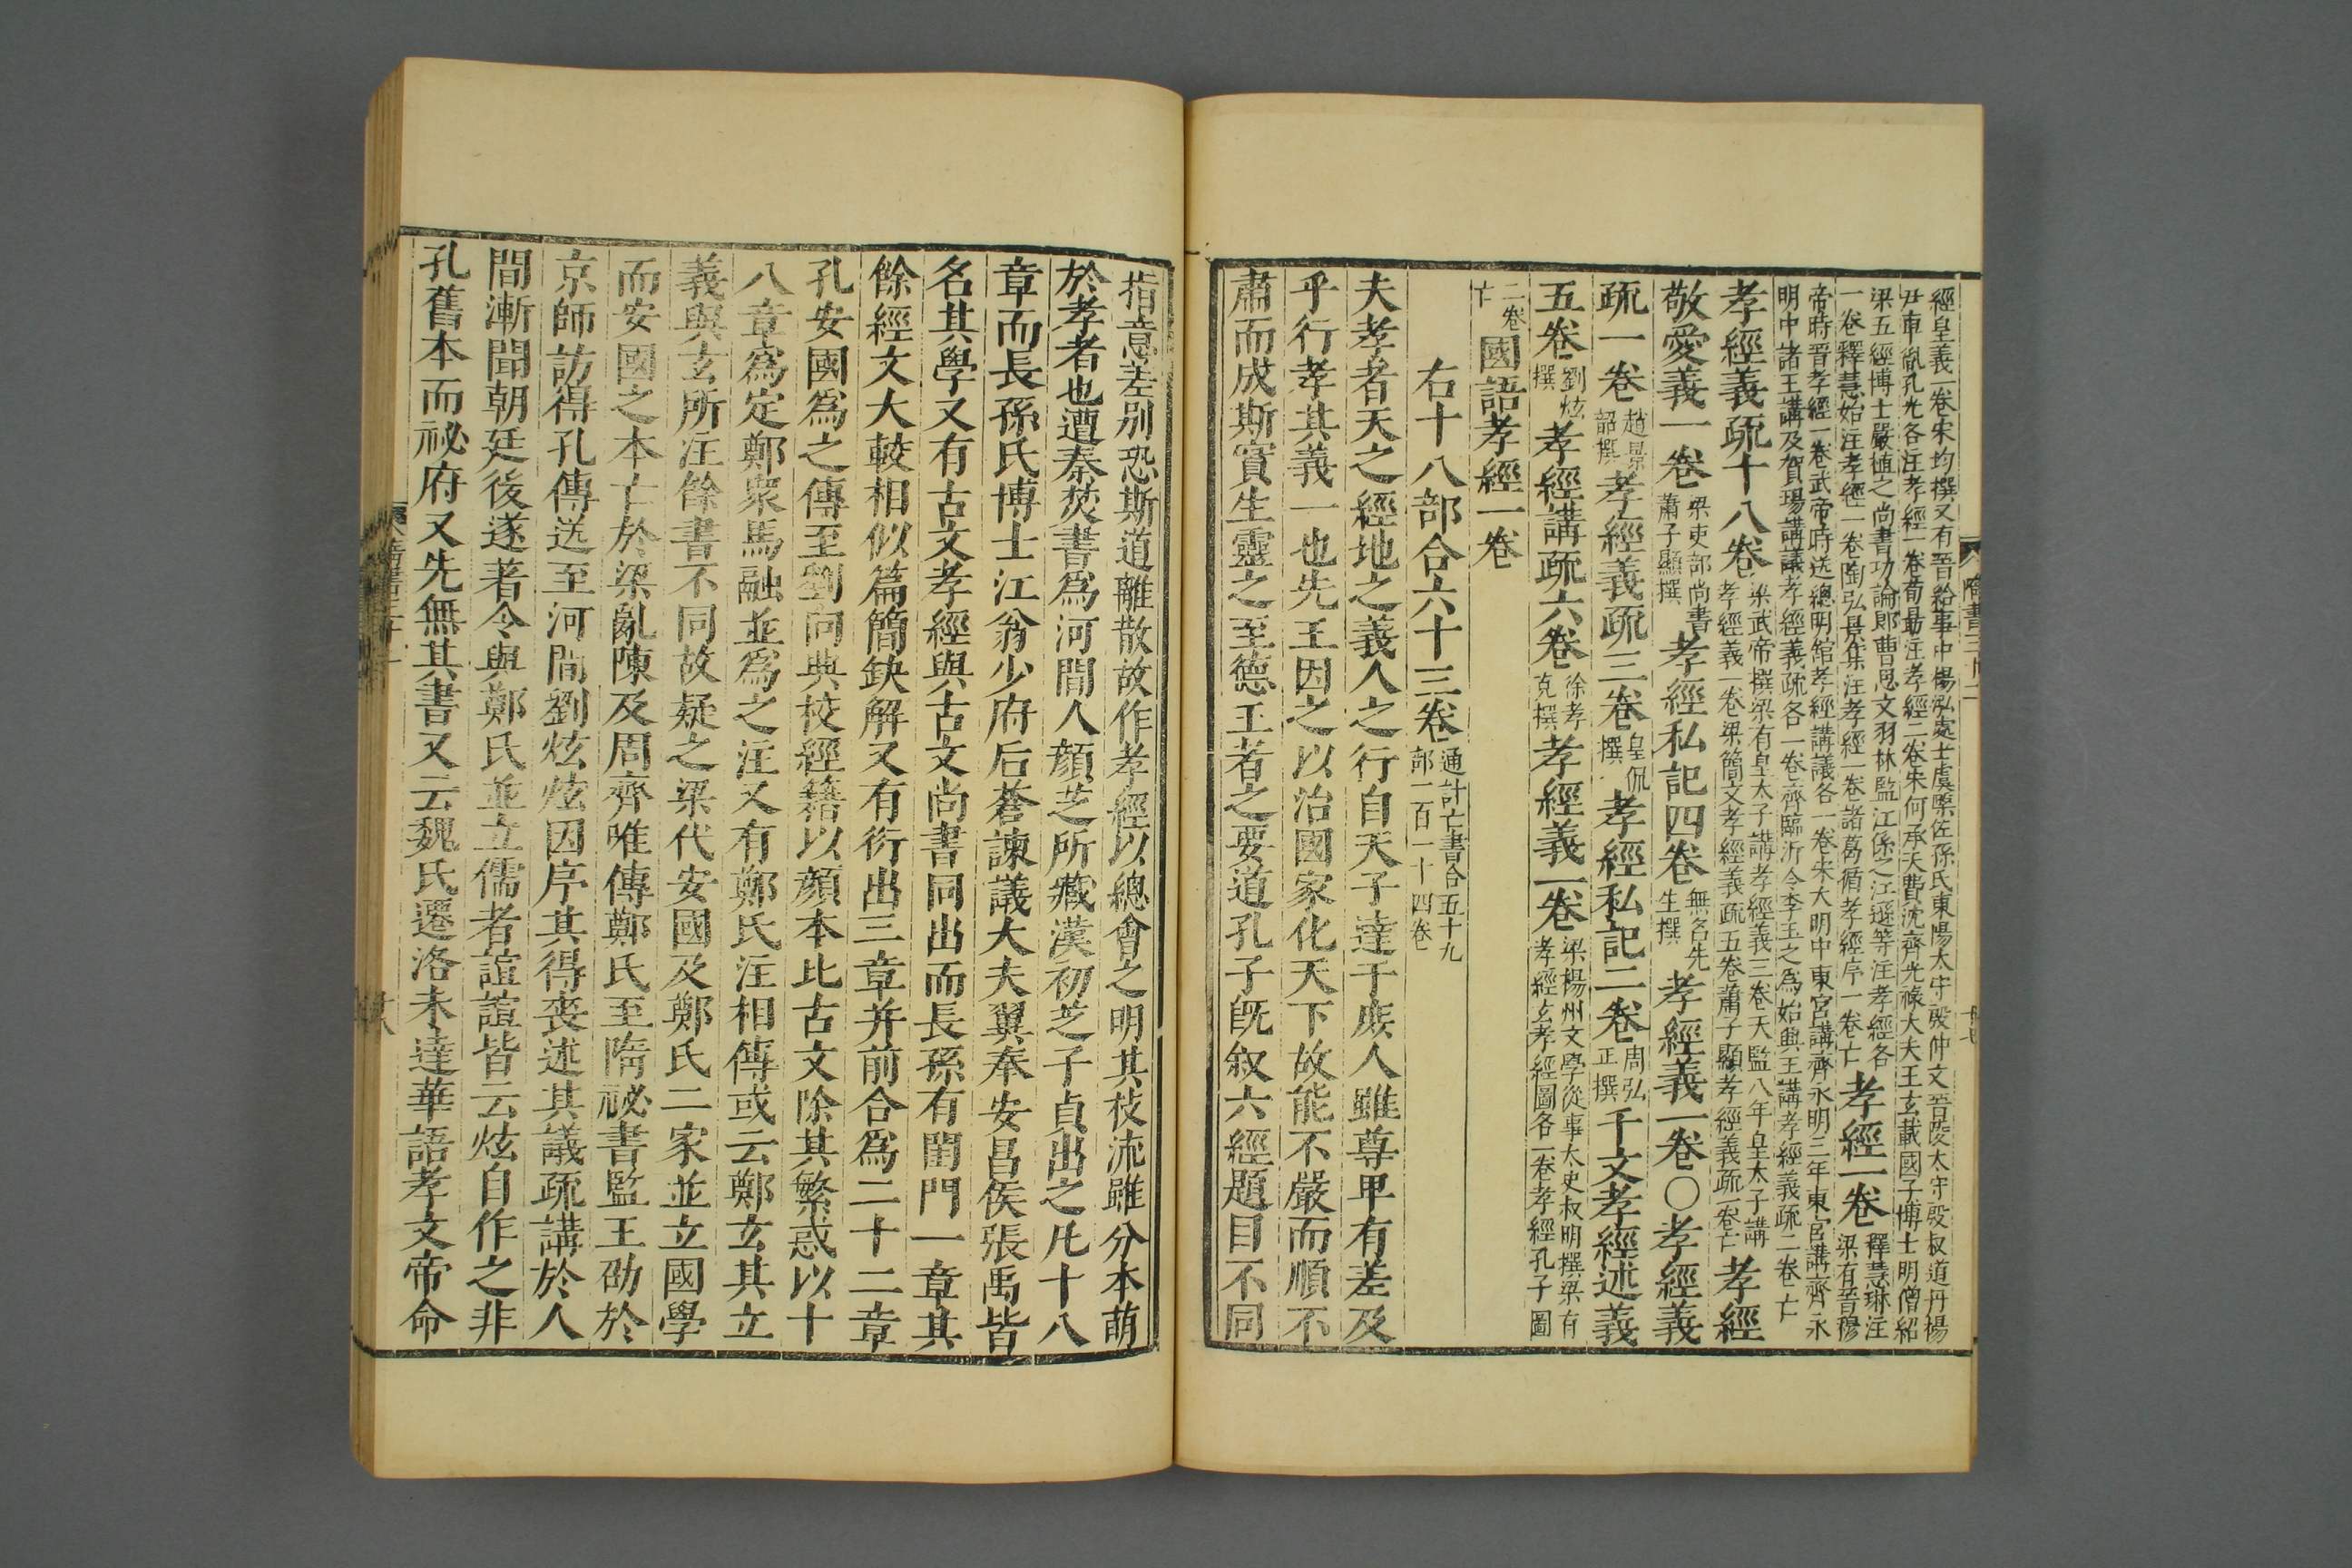 經皇義一卷宋均撰又有晉給事中楊泓處士虞槃佐孫氏東陽太守殷仲文晉陵太守殷叔道丹楊
尹車胤孔光各注孝經一卷荀勗注孝經二卷宋何承天費沈齊光祿大夫王玄載國子博士明僧紹
梁五經博士嚴植之尚書功論郎曹思文羽林監江係之江遜等注孝經各
一卷釋慧始注孝經一卷陶弘景集注孝經一卷諸葛循孝經序一卷亡
孝經一卷
釋慧琳注
梁有晉穆
帝時晉孝經一卷武帝時送總明館孝經講議各一卷宋大明中東宮講齊永明三年東宮講齊永
明中諸王講及賀瑒講議孝經義疏各一卷齊臨沂令李玉之為始興王講孝經義疏二卷亡
孝經義疏十八卷
梁武帝撰梁有皇太子講孝經義三卷天監八年皇太子講
孝經義一卷梁簡文孝經義疏五卷蕭子顯孝經義疏一卷亡
孝經
敬愛義一卷
梁吏部尚書
蕭子顯撰
孝經私記四卷
無名先
生撰
孝經義一卷〇孝經義
疏一卷
趙景
韶撰
孝經義疏三卷
皇侃
撰
孝經私記二卷
周弘
正撰
千文孝經述義
五卷
劉炫
撰
孝經講疏六卷
徐孝
克撰
孝經義一卷
梁楊州文學從事太史叔明撰梁有
孝經玄孝經圖各一卷孝經孔子圖
二卷
亡
國語孝經一卷
右十八部合六十三卷
通計亡書合五十九
部一百一十四卷
夫孝者天之經地之義人之行自天子達于庶人雖尊卑有差及
乎行孝其義一也先王因之以治國家化天下故能不嚴而順不
肅而成斯實生靈之至德王者之要道孔子旣叙六經題目不同
指意差别恐斯道離散故作孝經以總會之明其枝流雖分本萌
於孝者也遭秦焚書為河間人顏芝所藏漢初芝子貞出之凡十八
章而長孫氏博士江翁少府后蒼諫議大夫翼奉安昌侯張禹皆
名其學又有古文孝經與古文尚書同出而長孫有閨門一章其
餘經文大較相似篇簡缺解又有衍出三章并前合為二十二章
孔安國為之傳至劉向典校經籍以顏本比古文除其繁惑以十
八章為定鄭衆馬融並為之注又有鄭氏注相傳或云鄭玄其立
義與玄所注餘書不同故疑之梁代安國及鄭氏二家並立國學
而安國之本亡於梁亂陳及周齊唯傳鄭氏至隋祕書監王劭於
京師訪得孔傳送至河間劉炫炫因序其得喪述其議疏講於人
間漸聞朝廷後遂著令與鄭氏並立儒者諠諠皆云炫自作之非
孔舊本而祕府又先無其書又云魏氏遷洛未達華語孝文帝命